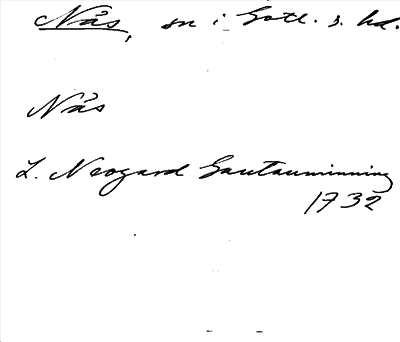 Nås, sn i Gotl. s. hd.
Nås
L. Neogard Gautauminning
1732